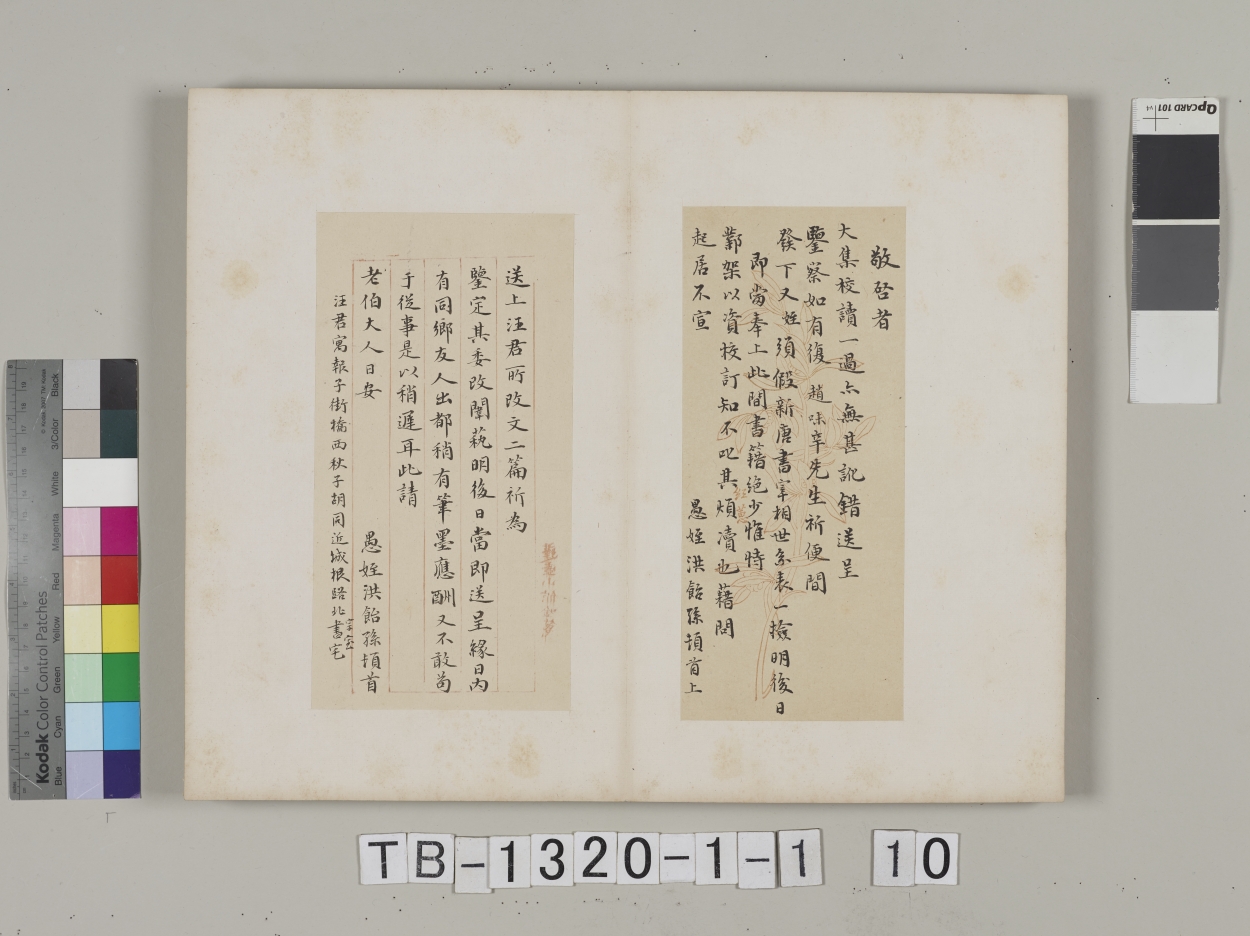 敬啓者
大集校讀一過亦無甚訛錯送呈
鑒察如有復趙味辛先生祈便間
發下又姪須假新唐書宰相世系表一撿明後日
即當奉上此間書籍絶少惟恃
鄴架以資校訂知不吪其煩瀆也藉問
起居不宣
愚姪洪飴孫頓首上
送上汪君所改文二篇祈為
鑒定其委改闈藝明後日當即送呈緣日內
有同鄉友人出都稍有筆墨應酬又不敢苟
于從事是以稍遲耳此請
老伯大人日安
愚姪洪飴孫頓首
汪君寓報子街橋西秋子胡同近城根路北書宅
TB-1320-1-1 10
Kodak Color Control Patches
Blue Cyan Green Yellow Red Magenta White 3/Color Black
QPCARD 101 v4